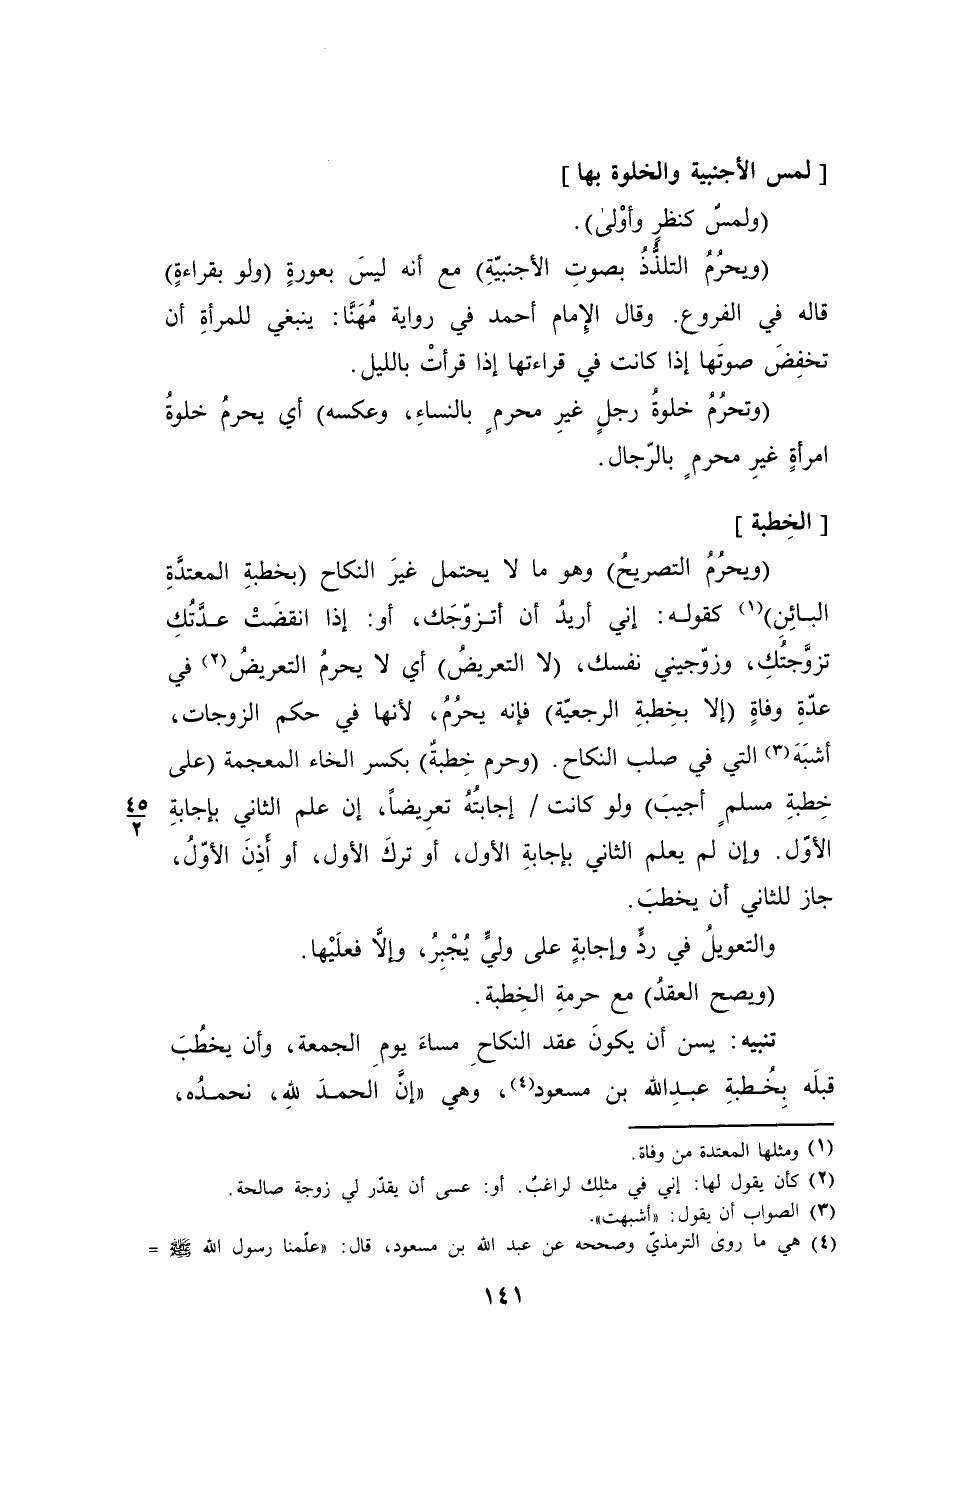 [ لمس الأجنبية والخلوة بها ]
(ولمسٌ كنظرٍ وأوْلىٰ).
(ويحرُمُ التلذُّذُ بصوتِ الأجنبيّةِ) مع أنه ليسَ بعورةٍ (ولو بقراءةٍ)
قاله في الفروع. وقال الإمام أحمد في رواية مُهَنَّا: ينبغي للمرأةِ أن
تخفِضَ صوتَها إذا كانت في قراءتها إذا قرأتْ بالليل.
(وتحرُمُ خلوةُ رجلٍ غيرِ محرمٍ بالنساءِ، وعكسه) أي يحرمُ خلوةُ
امرأةٍ غيرِ محرمٍ بالرّجال.
[ الخِطبة ]
(ويحرُمُ التصريحُ) وهو ما لا يحتمل غيرَ النكاح (بخطبةِ المعتدَّةِ
البائِنِ)(١) كقوله: إني أريدُ أن أتزوّجَك، أو: إذا انقضَتْ عدَّتُكِ
تزوَّجتُكِ، وزوّجيني نفسك، (لا التعريضُ) أي لا يحرمُ التعريضُ(٢) في
عدّةِ وفاةٍ (إلا بخطبةِ الرجعيّة) فإنه يحرُمُ، لأنها في حكم الزوجات،
أشبَهَ(٣) التي في صلب النكاح. (وحرم خِطبةٌ) بكسر الخاء المعجمة (على
خِطبةِ مسلمٍ أجيبَ) ولو كانت / إجابتُهُ تعريضاً، إن علم الثاني بإجابةِ
٤٥
٢
الأوّل. وإن لم يعلم الثاني بإجابةِ الأول، أو تركَ الأول، أو أَذِنَ الأوّلُ،
جاز للثاني أن يخطبَ.
والتعويلُ في ردٍّ وإجابةٍ على وليٍّ يُجْبِرُ، وإلَّا فعلَيْها.
(ويصح العقدُ) مع حرمةِ الخِطبة.
تنبيه: يسن أن يكونَ عقد النكاحِ مساءَ يومِ الجمعة، وأن يخطُبَ
قبلَه بِخُطبةِ عبدِالله بن مسعود(٤)، وهي «إنَّ الحمدَ للهِ، نحمدُه،
(١) ومثلها المعتدة من وفاة.
(٢) كأن يقول لها: إني في مثلِك لراغبٌ. أو: عسى أن يقدّر لي زوجة صالحة.
(٣) الصواب أن يقول: «أشبهت».
(٤) هي ما روىٰ الترمذيّ وصححه عن عبد الله بن مسعود، قال: «علّمنا رسول الله ﷺ =
١٤١